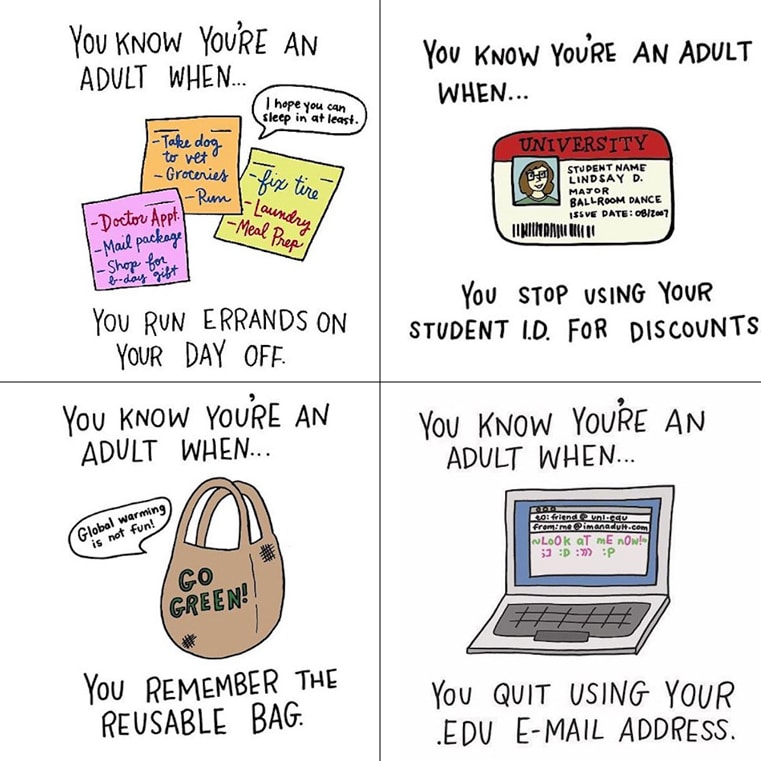 YOU KNOW YOU'RE AN
ADULT WHEN...
I hope you can
sleep in at least.
-Take dog
to vet
-Groceries
-Run
-fix tire
-Laundry
-Meal Prep
-Doctor Appt.
-Mail package
-Shop for
b-day gift
YOU RUN ERRANDS ON
YOUR DAY OFF.
YOU KNOW YOU'RE AN ADULT
WHEN...
UNIVERSITY
STUDENT NAME
LINDSAY D.
MAJOR
BALLROOM DANCE
ISSUE DATE: 08/2007
YOU STOP USING YOUR
STUDENT I.D. FOR DISCOUNTS
YOU KNOW YOU'RE AN
ADULT WHEN...
Global warming
is not fun!
GO
GREEN!
YOU REMEMBER THE
REUSABLE BAG.
YOU KNOW YOU'RE AN
ADULT WHEN...
to: friend@uni.edu
from: me@imanadult.com
~LoOk aT mE nOw!~
;] :D :))) :P
YOU QUIT USING YOUR
.EDU E-MAIL ADDRESS.